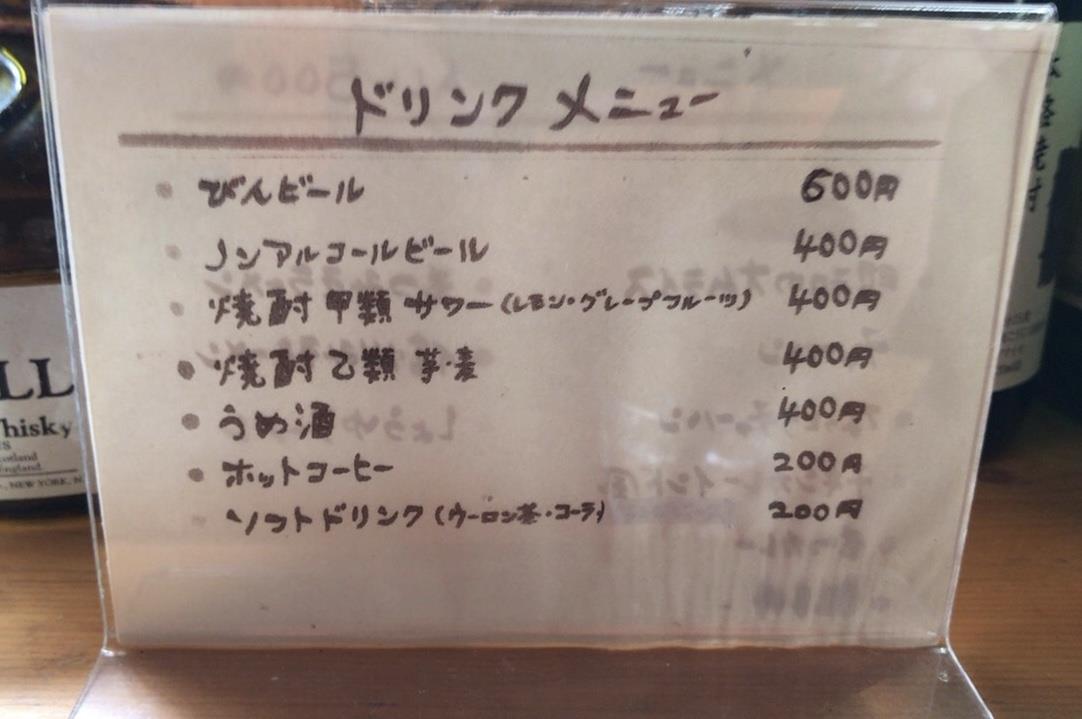 ドリンク メニュー
• びんビール 600円
• ノンアルコールビール 400円
• 焼酎甲類 サワー(レモン・グレープフルーツ) 400円
• 焼酎乙類 芋・麦 400円
• うめ酒 400円
• ホットコーヒー 200円
• ソフトドリンク(ウーロン茶・コーラ) 200円
LL
hisky
NEW YORK, N